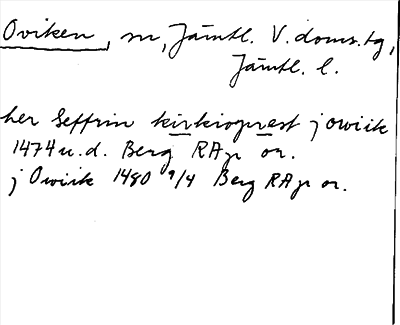 Oviken, sn, Jämtl. V. doms.tg,
Jämtl. l.
her Seffrin kirkioprest j owiik
1474 u.d. Berg RAp or.
j Owiik 1480 9/4 Berg RAp or.